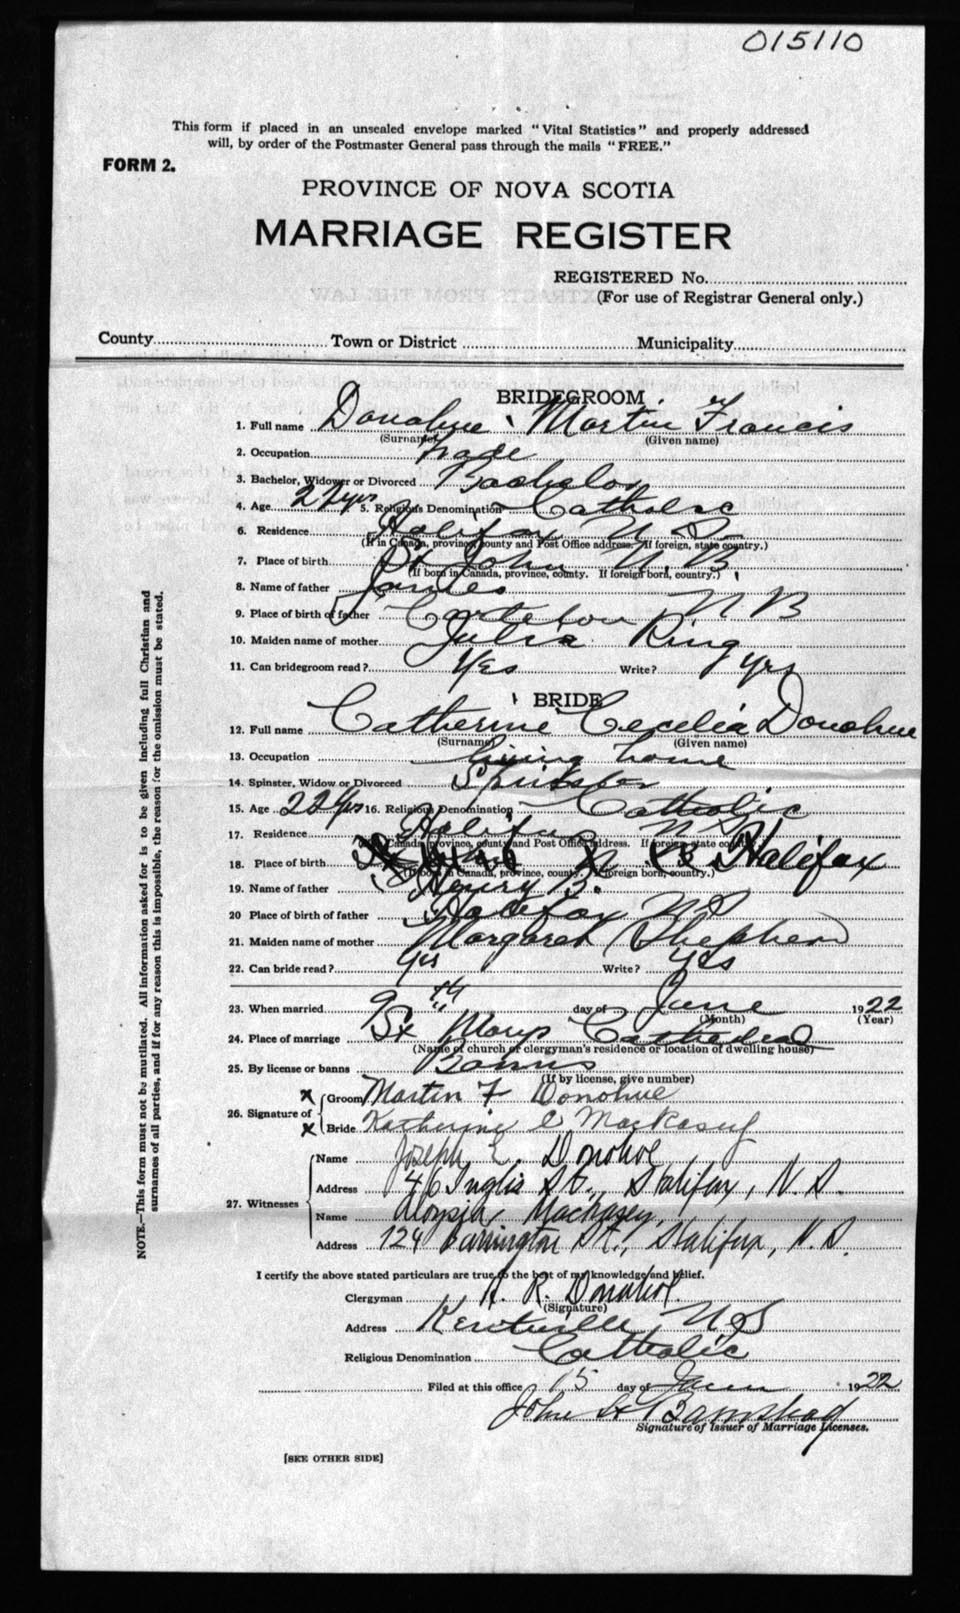 015110
This form if placed in an unsealed envelope marked "Vital Statistics" and properly addressed
will, by order of the Postmaster General pass through the mails "FREE."
FORM 2.
PROVINCE OF NOVA SCOTIA
MARRIAGE REGISTER
REGISTERED No.
(For use of Registrar General only.)
County Town or District Municipality
BRIDEGROOM
1. Full name Donahue Martin Francis
(Surname) (Given name)
2. Occupation Trade
3. Bachelor, Widower or Divorced Bachelor
4. Age 22 yrs 5. Religious Denomination Catholic
6. Residence Halifax N S
(If in Canada, province, county and Post Office address. If foreign, state country.)
7. Place of birth St John N. B
(If born in Canada, province, county. If foreign born, country.)
8. Name of father James
9. Place of birth of father Carleton N B
10. Maiden name of mother Julia Ring
11. Can bridegroom read? Yes Write? yes
BRIDE
12. Full name Catherine Cecelia Donohue
(Surname) (Given name)
13. Occupation living home
14. Spinster, Widow or Divorced Spinster
15. Age 22 yrs 16. Religious Denomination Catholic
17. Residence Halifax N S
(If in Canada, province, county and Post Office address. If foreign, state country.)
18. Place of birth Halifax
(If born in Canada, province, county. If foreign born, country.)
19. Name of father Henry B.
20 Place of birth of father Halifax N S
21. Maiden name of mother Margaret Shephen
22. Can bride read? Yes Write? Yes
23. When married 9th day of June 1922
(Month) (Year)
24. Place of marriage St Marys Cathedral
(Name of church or clergyman's residence or location of dwelling house)
25. By license or banns Banns
(If by license, give number)
26. Signature of x Groom Martin F Donohue
x Bride Katherine C Mackasey
27. Witnesses
Name Joseph E. Donohoe
Address 46 Inglis St., Halifax, N. S.
Name Aloysia Mackasey,
Address 124 Barrington St., Halifax, N. S.
I certify the above stated particulars are true to the best of my knowledge and belief.
Clergyman R. Donahoe.
(Signature)
Address Kentville N S
Religious Denomination Catholic
Filed at this office 15 day of 1922
John
Signature of Issuer of Marriage Licenses.
[SEE OTHER SIDE]
NOTE.—This form must not be mutilated. All information asked for is to be given including full Christian and
surnames of all parties, and if for any reason this is impossible, the reason for the omission must be stated.